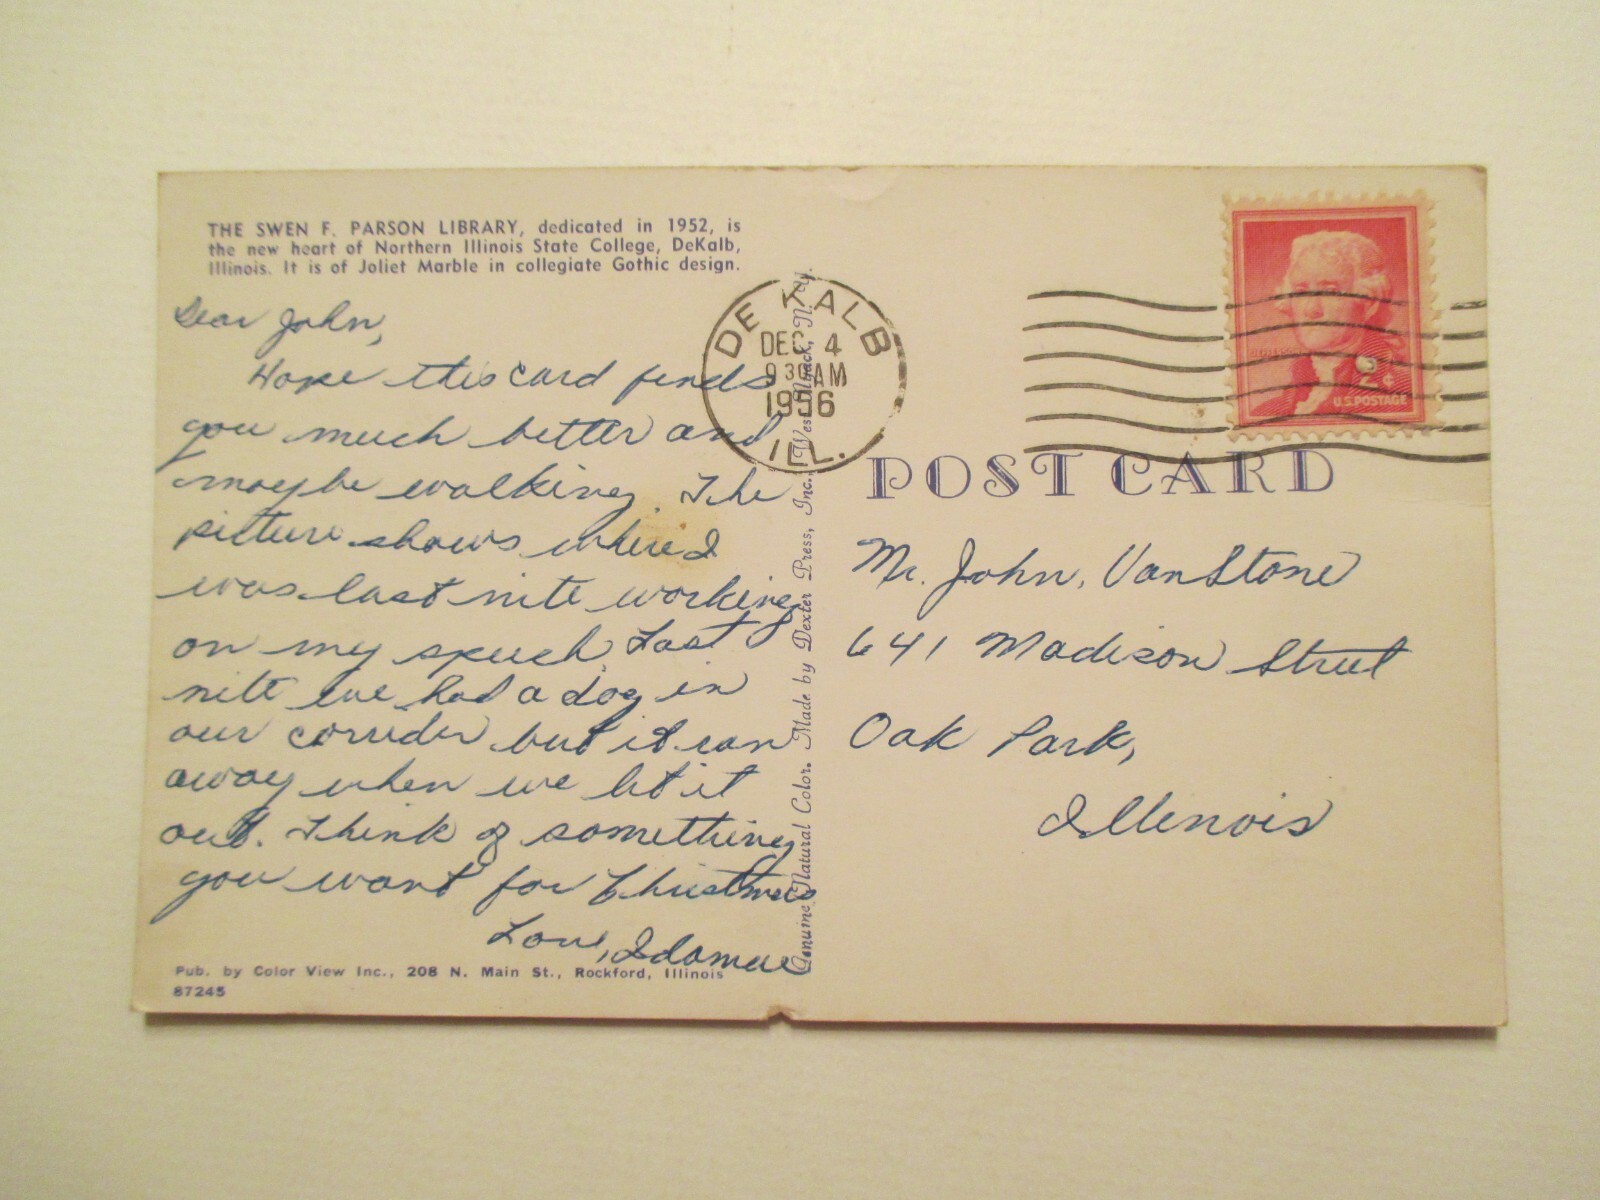 THE SWEN F. PARSON LIBRARY, dedicated in 1952, is
the new heart of Northern Illinois State College, DeKalb,
Illinois. It is of Joliet Marble in collegiate Gothic design.
Dear John,
Hope this card finds
you much better and
maybe walking. The
picture shows where I
was last nite working
on my speech. Last
nite we had a dog in
our corridor but it ran
away when we let it
out. Think of something
you want for Christmas
Love, Idamae
Pub. by Color View Inc., 208 N. Main St., Rockford, Illinois
87245
Genuine Natural Color. Made by Dexter Press, Inc., West Nyack, N. Y.
DE KALB
DEC 4
9 30 AM
1956
ILL.
2¢
U.S. POSTAGE
POST CARD
Mr. John VanStone
641 Madison Street
Oak Park,
Illinois